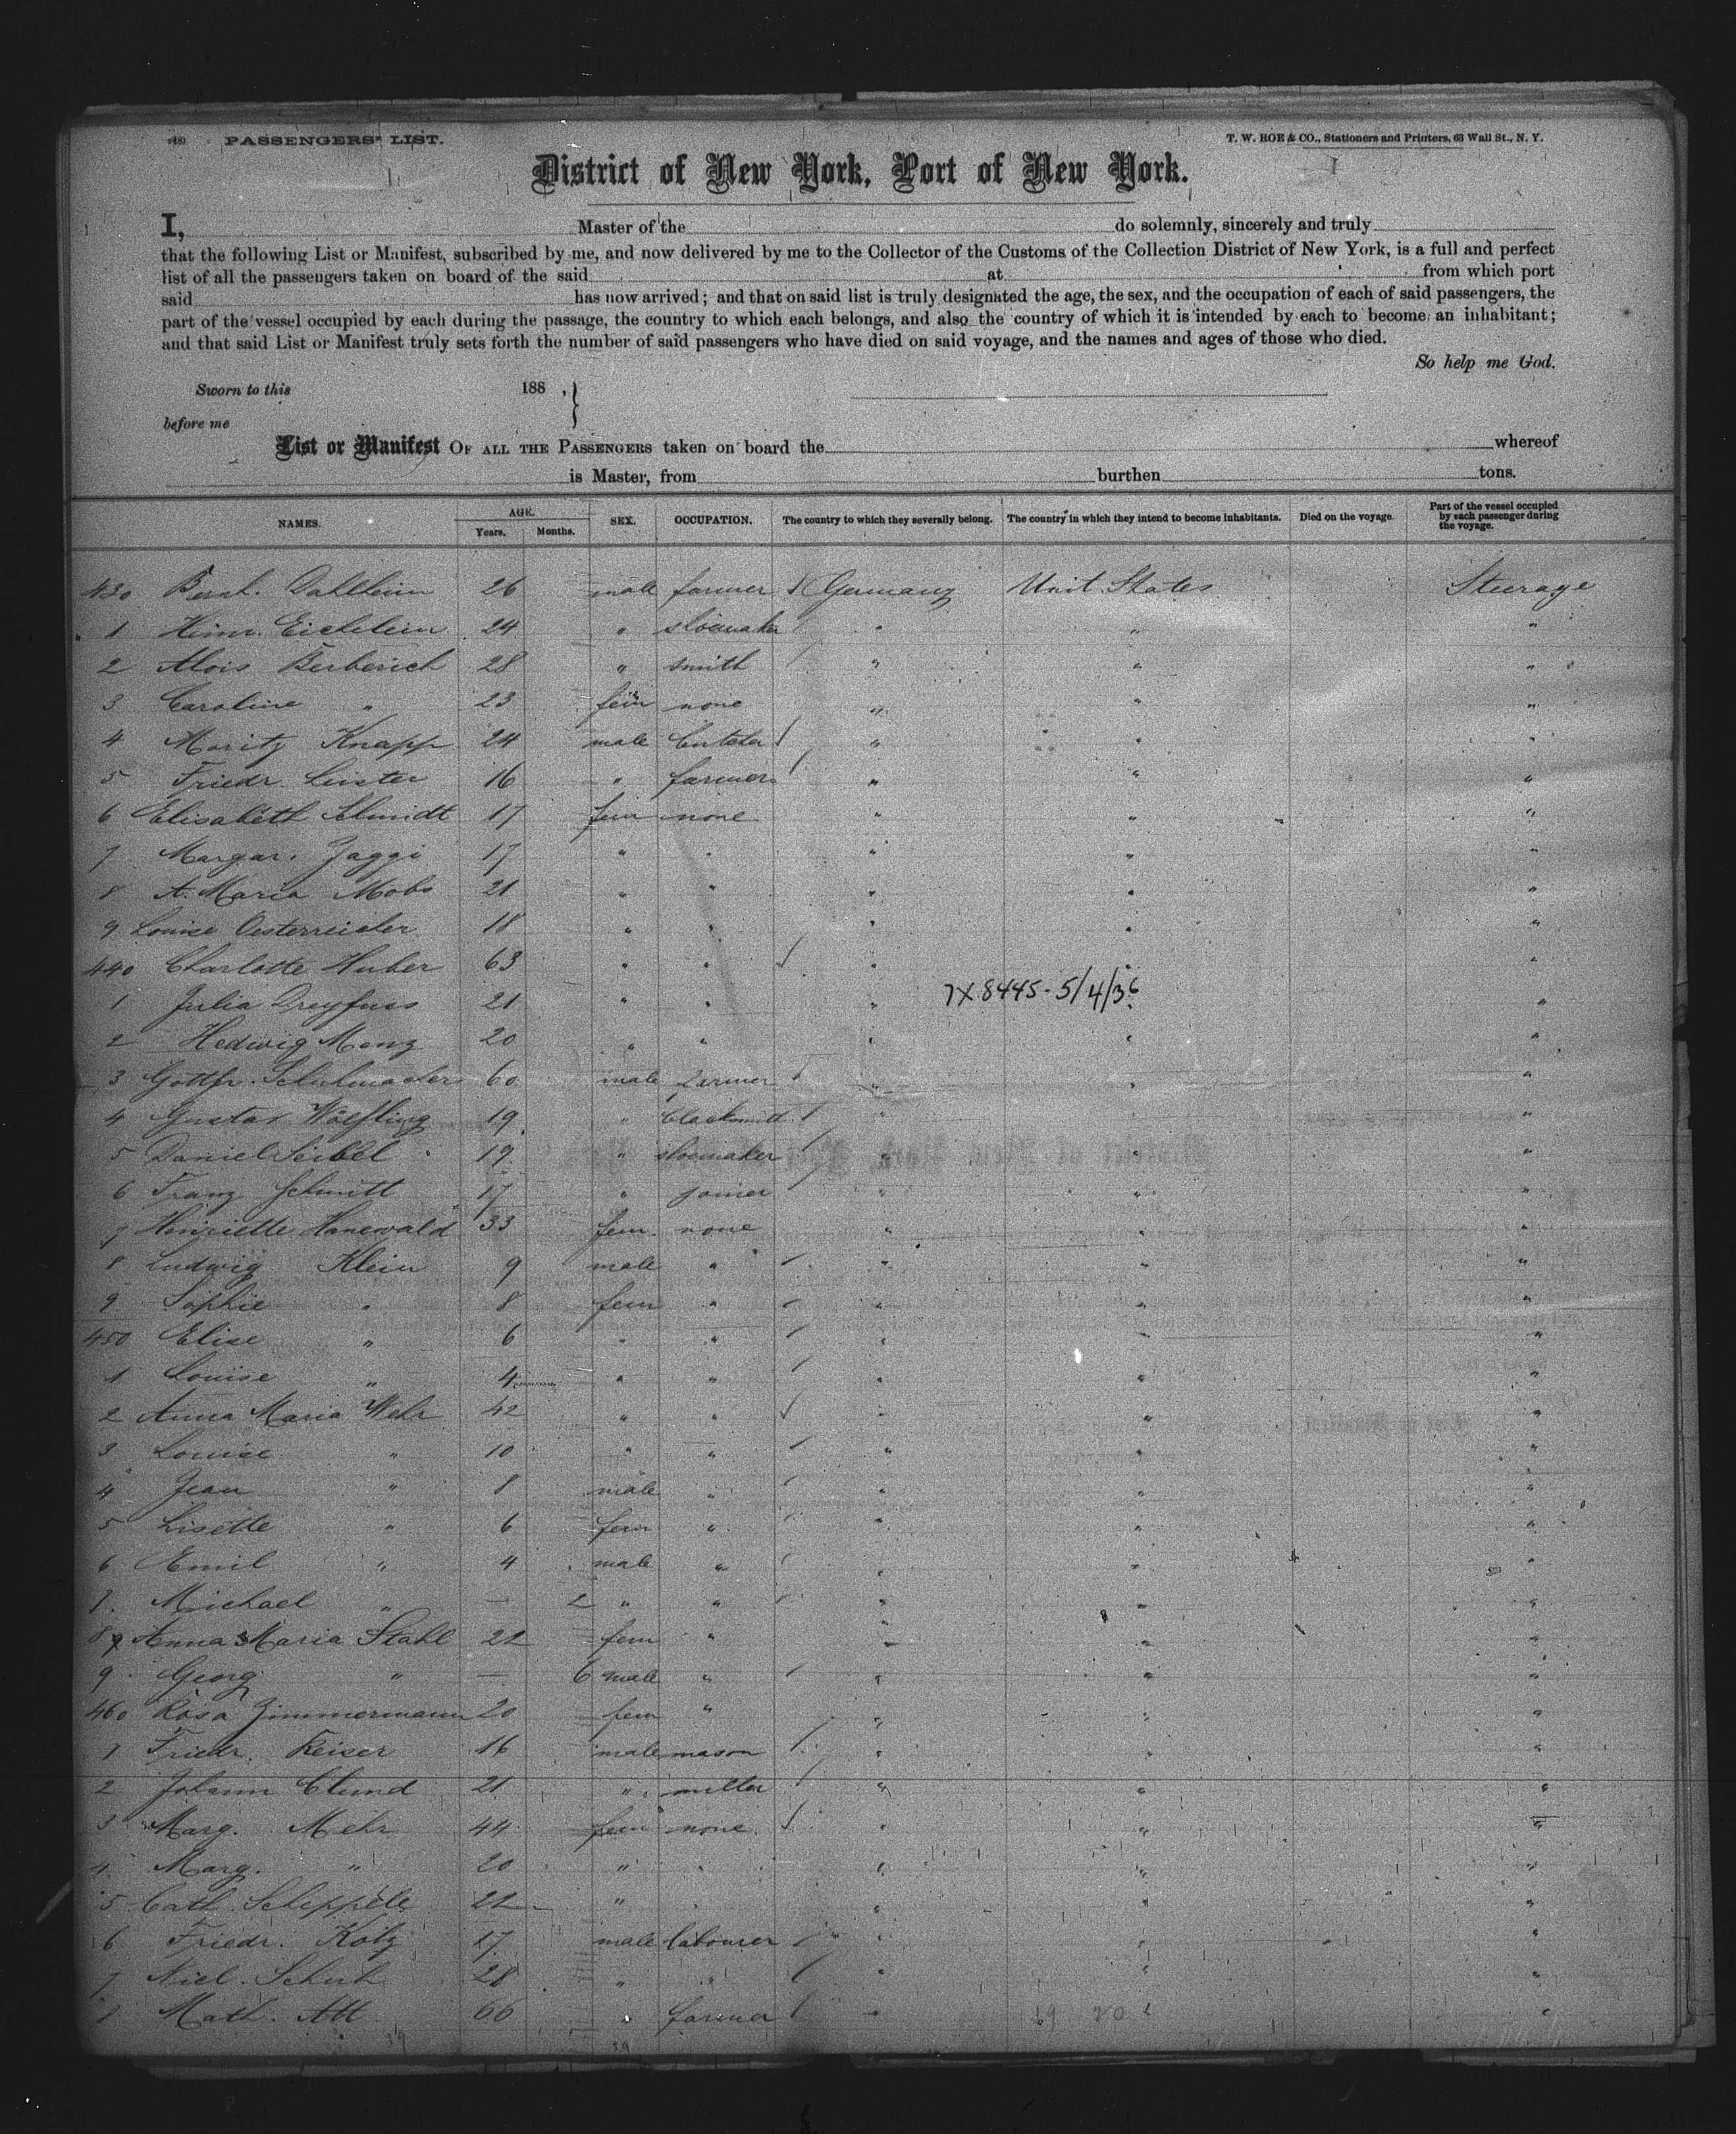 PASSENGERS' LIST.
T. W. ROE & CO., Stationers and Printers, 63 Wall St., N. Y.
District of New York, Port of New York.
I, Master of the do solemnly, sincerely and truly
that the following List or Manifest, subscribed by me, and now delivered by me to the Collector of the Customs of the Collection District of New York, is a full and perfect
list of all the passengers taken on board of the said at from which port
said has now arrived; and that on said list is truly designated the age, the sex, and the occupation of each of said passengers, the
part of the vessel occupied by each during the passage, the country to which each belongs, and also the country of which it is intended by each to become an inhabitant;
and that said List or Manifest truly sets forth the number of said passengers who have died on said voyage, and the names and ages of those who died.
So help me God.
Sworn to this 188 , }
before me
List or Manifest OF ALL THE PASSENGERS taken on board the whereof
is Master, from burthen tons.
NAMES. AGE. Years. Months. SEX. OCCUPATION. The country to which they severally belong. The country in which they intend to become inhabitants. Died on the voyage. Part of the vessel occupied by each passenger during the voyage.
430 Bernh. Dahlheim 26 male farmer Germany Unit. States Steerage
1 Heinr. Eichelein 24 " shoemaker " " "
2 Alois Berberich 28 " smith " " "
3 Caroline " 23 fem none " " "
4 Moritz Knapp 24 male butcher " " "
5 Friedr. Leister 16 " farmer " " "
6 Elisabeth Schmidt 17 fem none " " "
7 Margar. Jaggi 17 " " " " "
8 A. Maria Mobs 21 " " " " "
9 Louise Oesterreicher 18 " " " " "
440 Charlotte Huber 63 " " " " "
7X8445-5/4/36
1 Julia Dreyfuss 21 " " " "
2 Hedwig Menz 20 " " " " "
3 Gottfr. Schuhmacher 60 male farmer " " "
4 Gustav Wölfling 19 " blacksmith " "
5 Daniel Seibel 19 " shoemaker "
6 Franz Schmitt 17 " joiner " " "
7 Henriette Hanewald 33 fem. none " " "
8 Ludwig Klein 9 male " " " "
9 Sophie " 8 fem " " " "
450 Elise " 6 " " " " "
1 Louise " 4 " " " " "
2 Anna Maria Wehr 42 " " " " "
3 Louise " 10 " " " " "
4 Jean " 8 male " " " "
5 Lisette " 6 fem " " " "
6 Emil " 4 male " " " "
7. Michael " — 2 " " " " "
8 Anna Maria Stahl 22 fem " " " "
9 Georg " — 6 male " " " "
460 Rosa Zimmermann 20 fem " " " "
1 Friedr. Keiser 16 male mason " " "
2 Johann Clund 21 " miller " " "
3 Marg. Mehr 44 fem none " " "
4 Marg. " 20 " " " " "
5 Cath. 22 " " " "
6 Friedr. Kolz 17 male labourer " " "
7 Nicl. Schuh 28 " " " " "
8 Math. Alt 66 " farmer " "